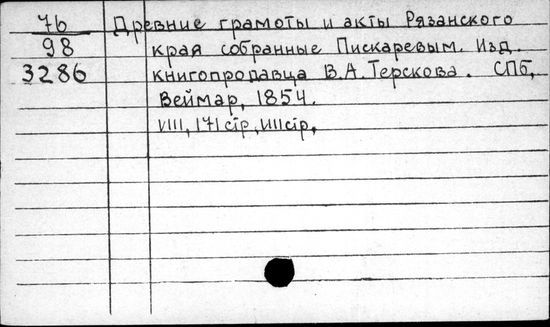 76 Древние грамоты и акты Рязанского
98 края собранные Пискаревым. Изд.
3286 книгопродавца В.А.Терскова. СПб,
Веймар, 1854.
VIII, 171 стр, VIII стр,